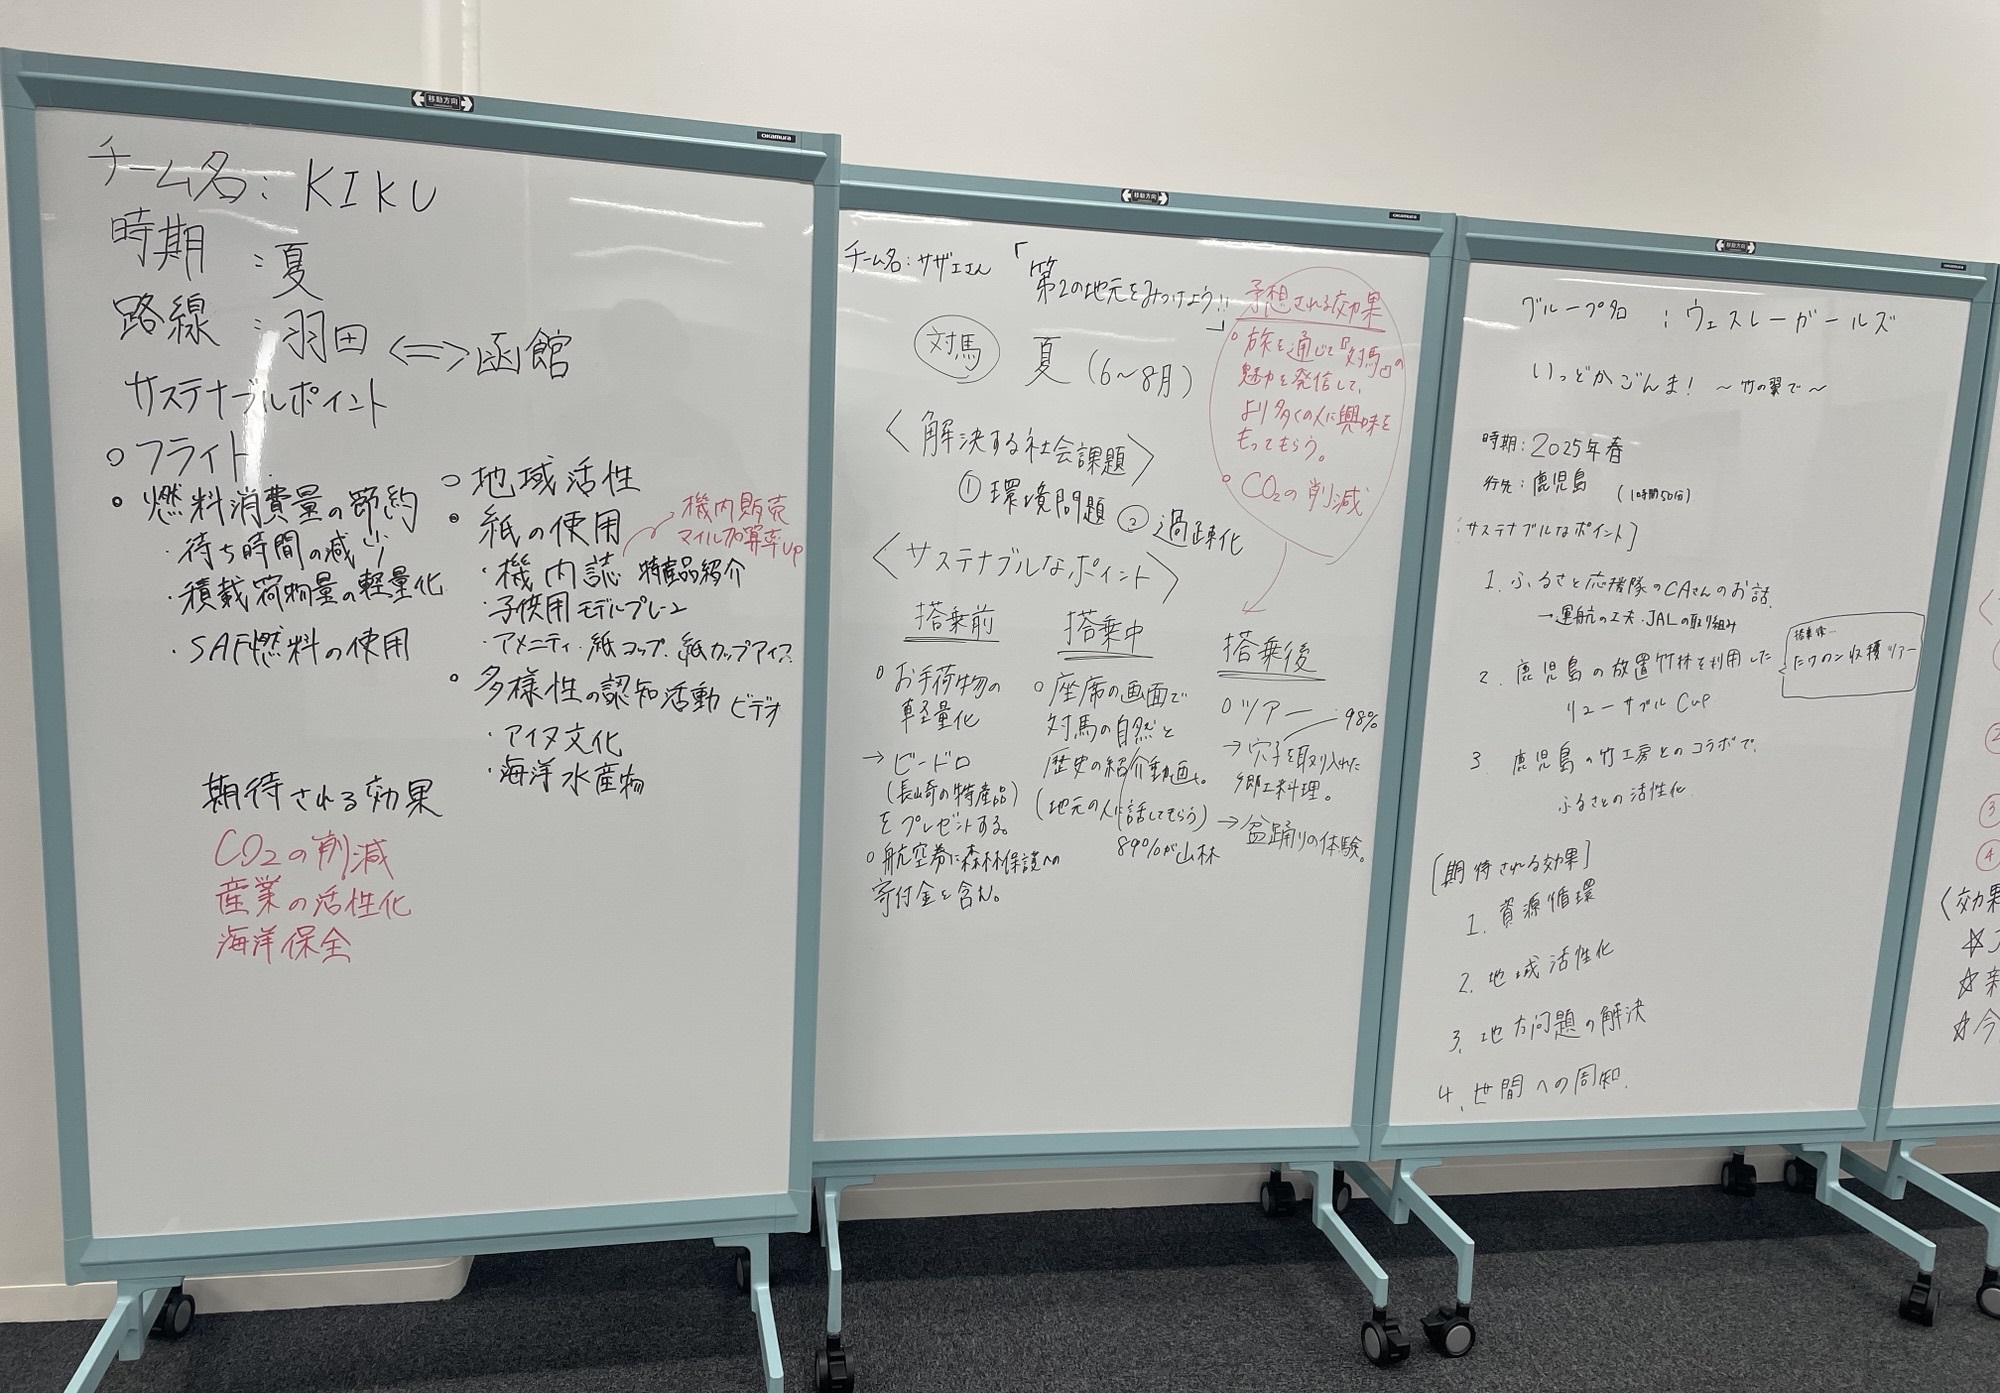 移動方向
okamura
チーム名: KIKU
時期 : 夏
路線 : 羽田 ⇔ 函館
サステナブルポイント
○フライト
○燃料消費量の節約
・待ち時間の減少
・積載荷物量の軽量化
・SAF燃料の使用
○地域活性
○紙の使用
機内販売
マイル加算率up
・機内誌 特産品紹介
・子供用モデルプレーン
・アメニティ・紙コップ・紙カップアイス
○多様性の認知活動 ビデオ
・アイヌ文化
・海洋水産物
期待される効果
CO2の削減
産業の活性化
海洋保全
移動方向
okamura
チーム名:サザエさん
「第2の地元をみつけよう!!」
対馬 夏(6〜8月)
予想される効果
○旅を通じて『対馬』の
魅力を発信して、
より多くの人に興味を
もってもらう。
○CO2の削減
〈解決する社会課題〉
①環境問題 ②過疎化
〈サステナブルなポイント〉
搭乗前
○お手荷物の
軽量化
→ビードロ
(長崎の特産品)
をプレゼントする。
○航空券に森林保護への
寄付金を含む。
搭乗中
○座席の画面で
対馬の自然と
歴史の紹介動画を。
(地元の人に話してもらう)
89%が山林
搭乗後
○ツアー 98%
→穴子を取り入れた
郷土料理。
→盆踊りの体験。
移動方向
okamura
グループ名 : ウェスレーガールズ
いっどかごんま! 〜竹の翼で〜
時期:2025年春
行先:鹿児島 (1時間50分)
[サステナブルなポイント]
1. ふるさと応援隊のCAさんのお話
→運航の工夫・JALの取り組み
2. 鹿児島の放置竹林を利用した
リユーザブルCup
たけのこ収穫ツアー
3. 鹿児島の竹工房とのコラボで、
ふるさとの活性化
[期待される効果]
1. 資源循環
2. 地域活性化
3. 地方問題の解決
4. 世間への周知
②
③
④
〈効果
☆
☆新
☆今